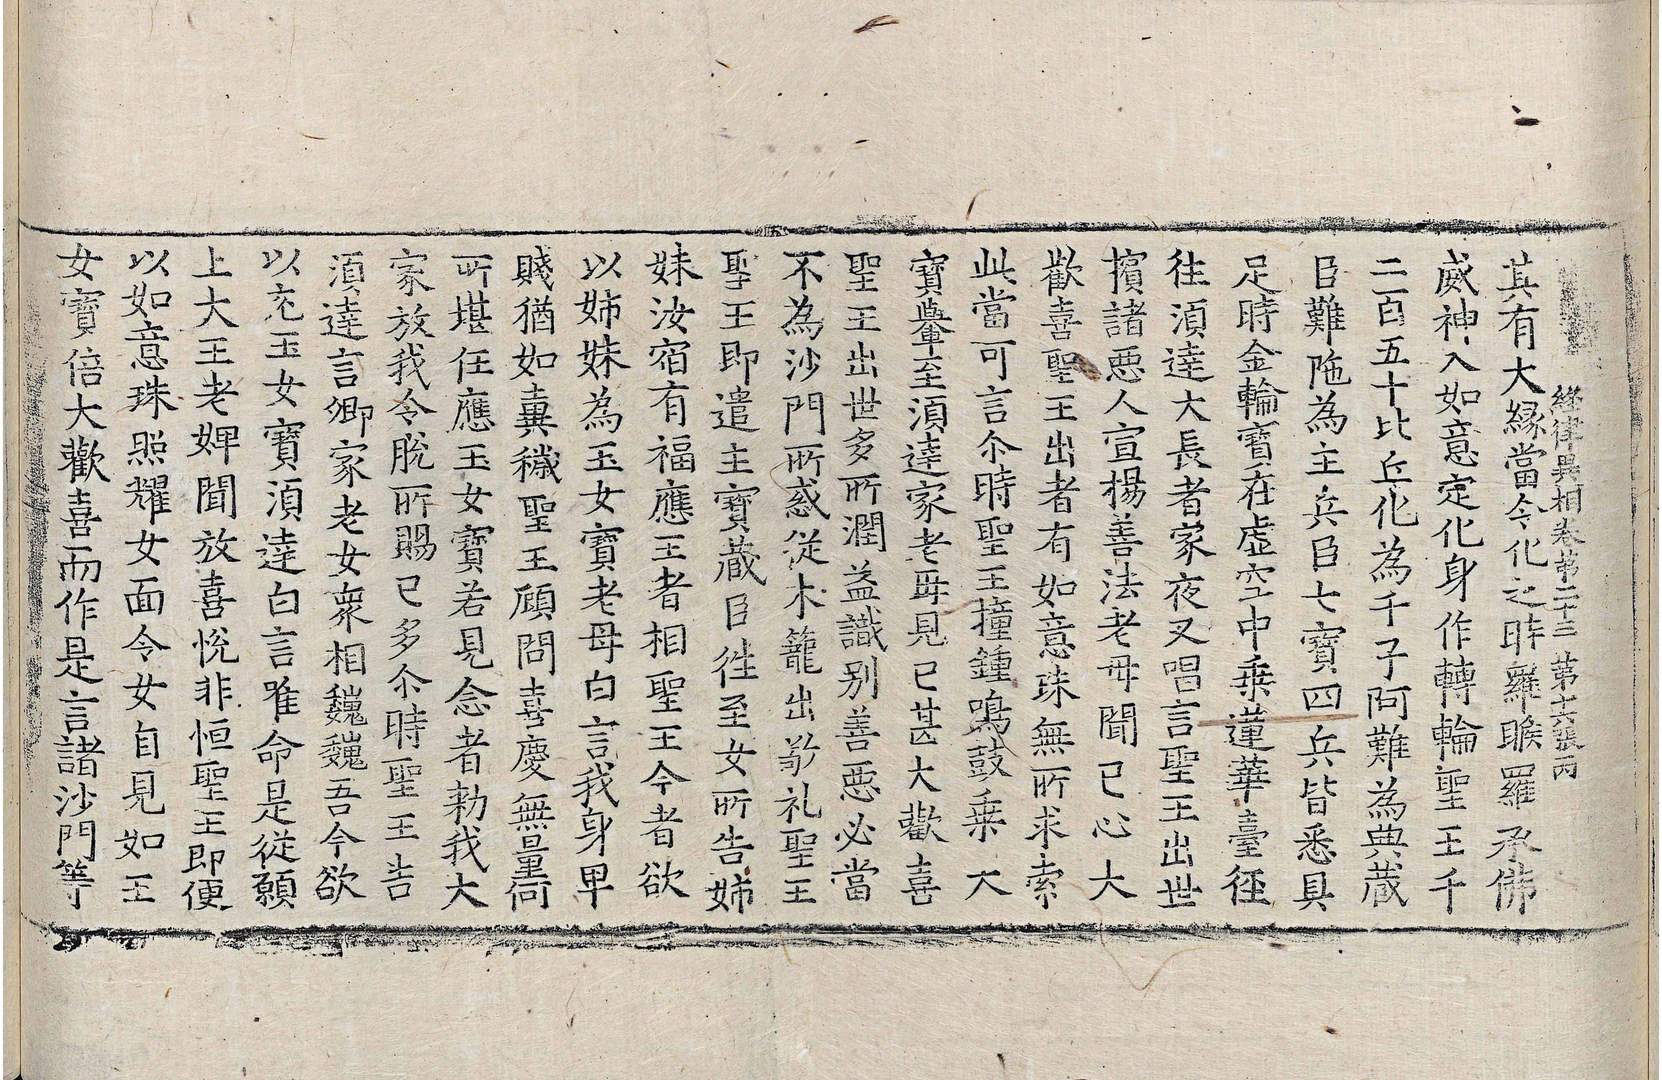 經律異相卷第二十三 第十六張 丙
其有大縁當令化之時羅睺羅承佛
威神入如意定化身作轉輪聖王千
二百五十比丘化為千子阿難為典藏
臣難陁為主兵臣七寶四兵皆悉具
足時金輪寶在虛空中乗蓮華臺徑
往湏達大長者家夜叉唱言聖王出世
擯諸惡人宣楊善法老母聞已心大
歡喜聖王出者有如意珠無所求索
此當可言尒時聖王撞鍾鳴鼓乗大
寶轝至湏達家老母見已甚大歡喜
聖王出世多所潤益識別善惡必當
不為沙門所惑從木籠出敬礼聖王
聖王即遣主寶藏臣往至女所告姉
妹汝宿有福應王者相聖王今者欲
以姉妹為玉女寶老母白言我身卑
賤猶如糞穢聖王顧問喜慶無量何
所堪任應玉女寶若見念者勑我大
家放我令脫所賜已多尒時聖王告
湏達言卿家老女衆相巍巍吾今欲
以充玉女寶湏達白言唯命是從願
上大王老婢聞放喜悅非恒聖王即便
以如意珠照耀女面令女自見如王
女寶倍大歡喜而作是言諸沙門等